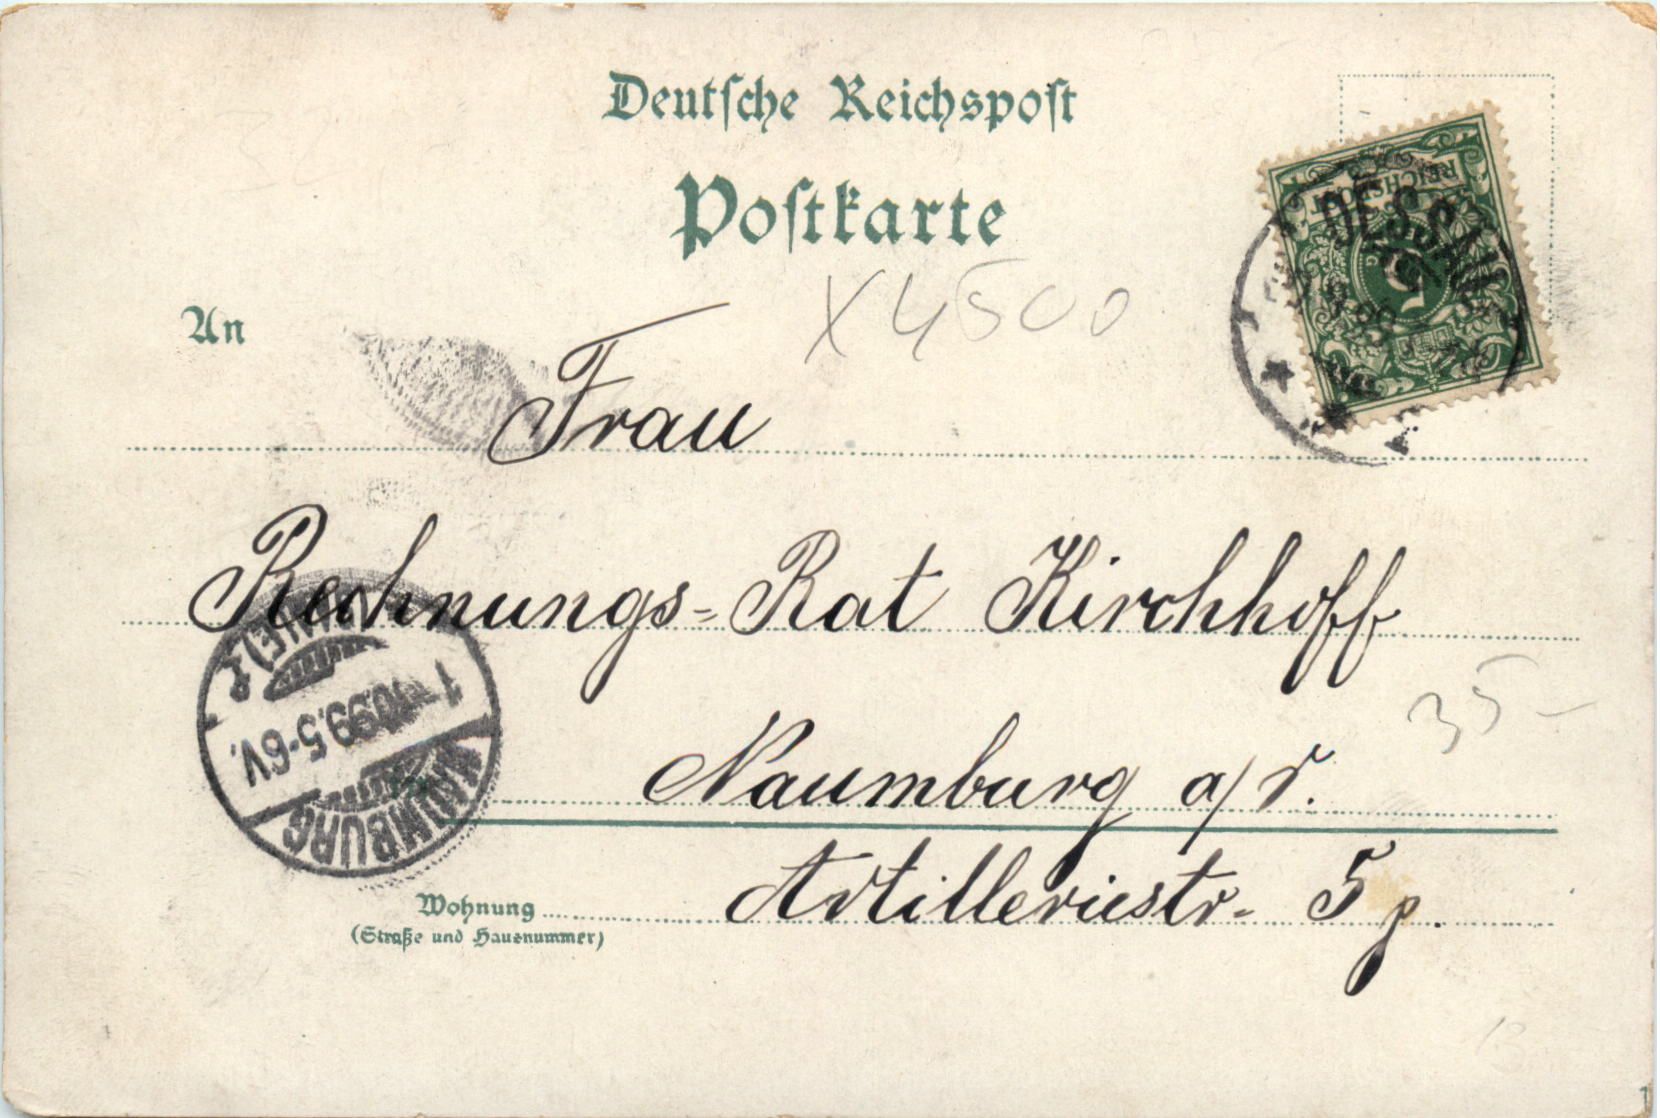 Deutsche Reichspost
Postkarte
REICHSPOST
5
DESSAU
X 4500
An
Frau
Rechnungs-Rat Kirchhoff
Naumburg a/S.
Artilleriestr. 5 p.
35-
NAUMBURG
1 10.99.5-6V.
(SAALE)
Wohnung
(Straße und Hausnummer)
1